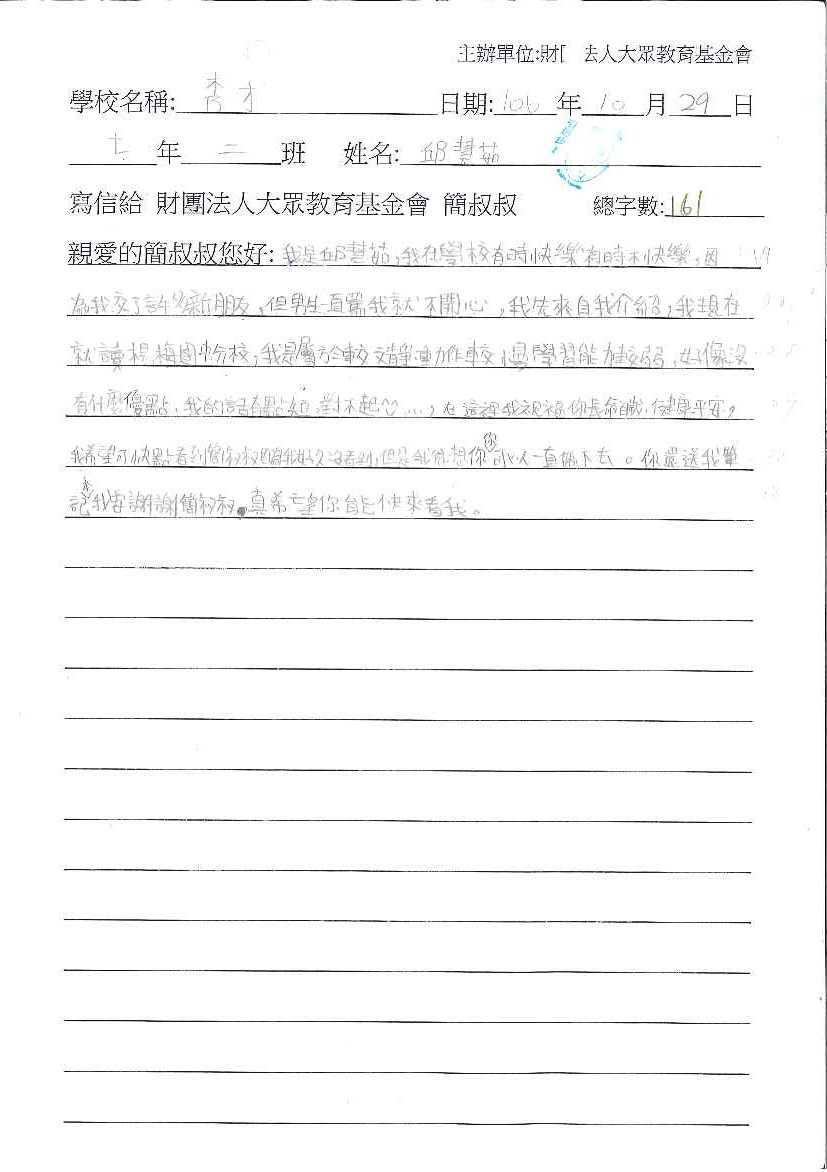 主辦單位:財 法人大眾教育基金會
學校名稱: 秀才 日期: 106 年 10 月 29 日
七 年 二 班 姓名: 邱慧茹
寫信給 財團法人大眾教育基金會 簡叔叔 總字數: 161
親愛的簡叔叔您好: 我是邱慧茹,我在學校有時快樂有時不快樂,因
為我交了許多新朋友,但男生一直罵我就不開心,我先來自我介紹,我現在
就讀楊梅國中分校,我是屬於較文靜動作較慢學習能力較弱,好像沒
有什麼優點,我的話有點短對不起^^...,在這裡我祝福你長命百歲,健康平安,
我希望可快點看到簡叔叔因為我好久沒看到,但是我你可以一直 下去。你還送我筆
記本我要謝謝簡叔叔。真希望你能快來看我。